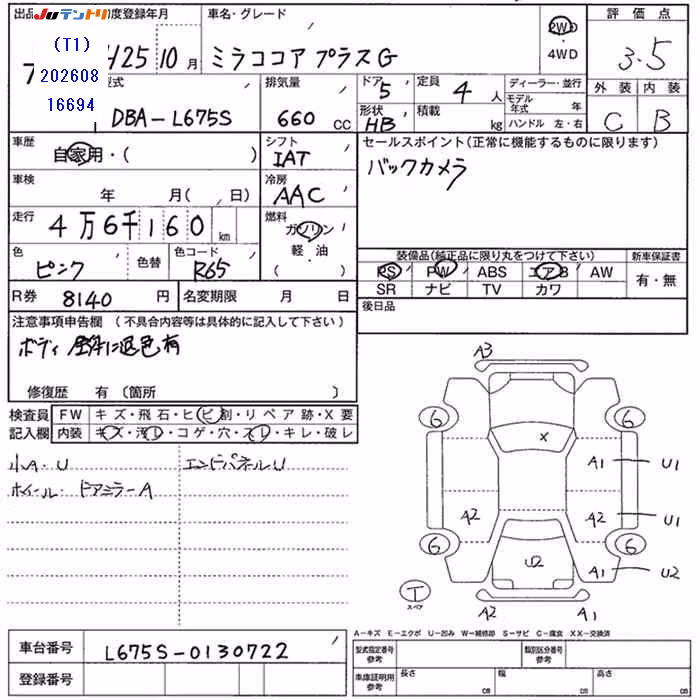 JUテントリ
出品
度登録年月
車名・グレード
評価点
(T1)
202608
16694
7
25 10 月
ミラココア プラスG
2WD
4WD
3.5
型式
DBA-L675S
排気量
660 CC
ドア 5
形状 HB
定員 4 人
積載 kg
ディーラー・並行
モデル年式 年
ハンドル 左・右
外装 内装
C B
車歴
自家用・( )
シフト
IAT
セールスポイント(正常に機能するものに限ります)
バックカメラ
車検
年 月( 日)
冷房
AAC
走行
4万6千160 km
燃料
ガソリン
軽・油
( )
色
ピンク
色替
色コード
R65
装備品(純正品に限り丸をつけて下さい)
新車保証書
PS PW ABS エアB AW
SR ナビ TV カワ
有・無
R券 8140 円
名変期限 月 日
後日品
注意事項申告欄 (不具合内容等は具体的に記入して下さい)
ボディ 全体に退色有
修復歴 有 〔箇所 〕
検査員
記入欄
FW キズ・飛石・ヒビ割・リペア跡・X要
内装 キズ・汚レ・コゲ・穴・スレ・キレ・破レ
小A・U
エンドパネルU
ホイール・ドアミラーA
A3
6 6
X
A1 U1
A2 A2 U1
6 6
U2
A1 U2
T
スペア
A2 A1
A-キズ E-エクボ U-凹み W-補修跡 S-サビ C-腐食 XX-交換済
車台番号 L675S-0130722
登録番号
型式指定番号
参考
類別区分番号
参考
車庫証明用
参考
長さ cm
幅 cm
高さ cm